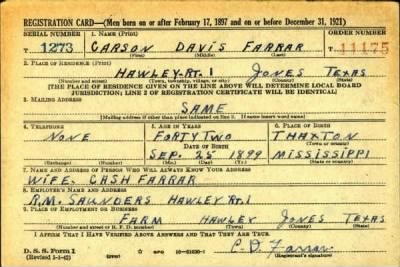 REGISTRATION CARD—(Men born on or after February 17, 1897 and on or before December 31, 1921)
SERIAL NUMBER 1. NAME (Print) ORDER NUMBER
T 1273 CARSON DAVIS FARRAR 11175
(First) (Middle) (Last)
2. PLACE OF RESIDENCE (Print)
HAWLEY-RT. 1 JONES TEXAS
(Number and street) (Town, township, village, or city) (County) (State)
[THE PLACE OF RESIDENCE GIVEN ON THE LINE ABOVE WILL DETERMINE LOCAL BOARD
JURISDICTION; LINE 2 OF REGISTRATION CERTIFICATE WILL BE IDENTICAL]
3. MAILING ADDRESS
SAME
[Mailing address if other than place indicated on line 2. If same insert word same]
4. TELEPHONE 5. AGE IN YEARS 6. PLACE OF BIRTH
NONE FORTY TWO THAXTON
DATE OF BIRTH (Town or county)
SEP. 25 1899 MISSISSIPPI
(Exchange) (Number) (Mo.) (Day) (Yr.) (State or country)
7. NAME AND ADDRESS OF PERSON WHO WILL ALWAYS KNOW YOUR ADDRESS
WIFE. CASH FARRAR
8. EMPLOYER'S NAME AND ADDRESS
R.M. SAUNDERS HAWLEY RT. 1
9. PLACE OF EMPLOYMENT OR BUSINESS
FARM HAWLEY JONES TEXAS
(Number and street or R. F. D. number) (Town) (County) (State)
I AFFIRM THAT I HAVE VERIFIED ABOVE ANSWERS AND THAT THEY ARE TRUE.
C. D. Farrar
D. S. S. Form 1 (Registrant's signature)